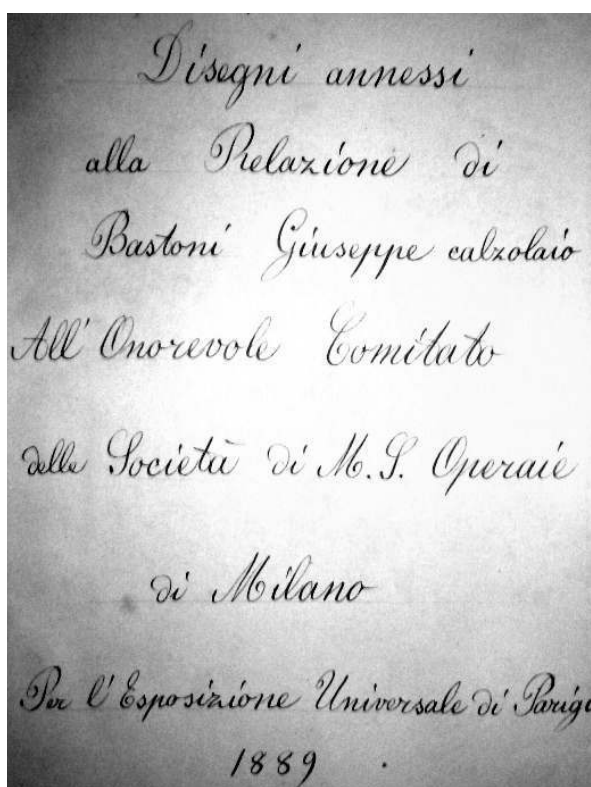 Disegni annessi
alla Relazione di
Bastoni Giuseppe calzolaio
All' Onorevole Comitato
delle Società di M. S. Operaie
di Milano
Per l'Esposizione Universale di Parigi
1889